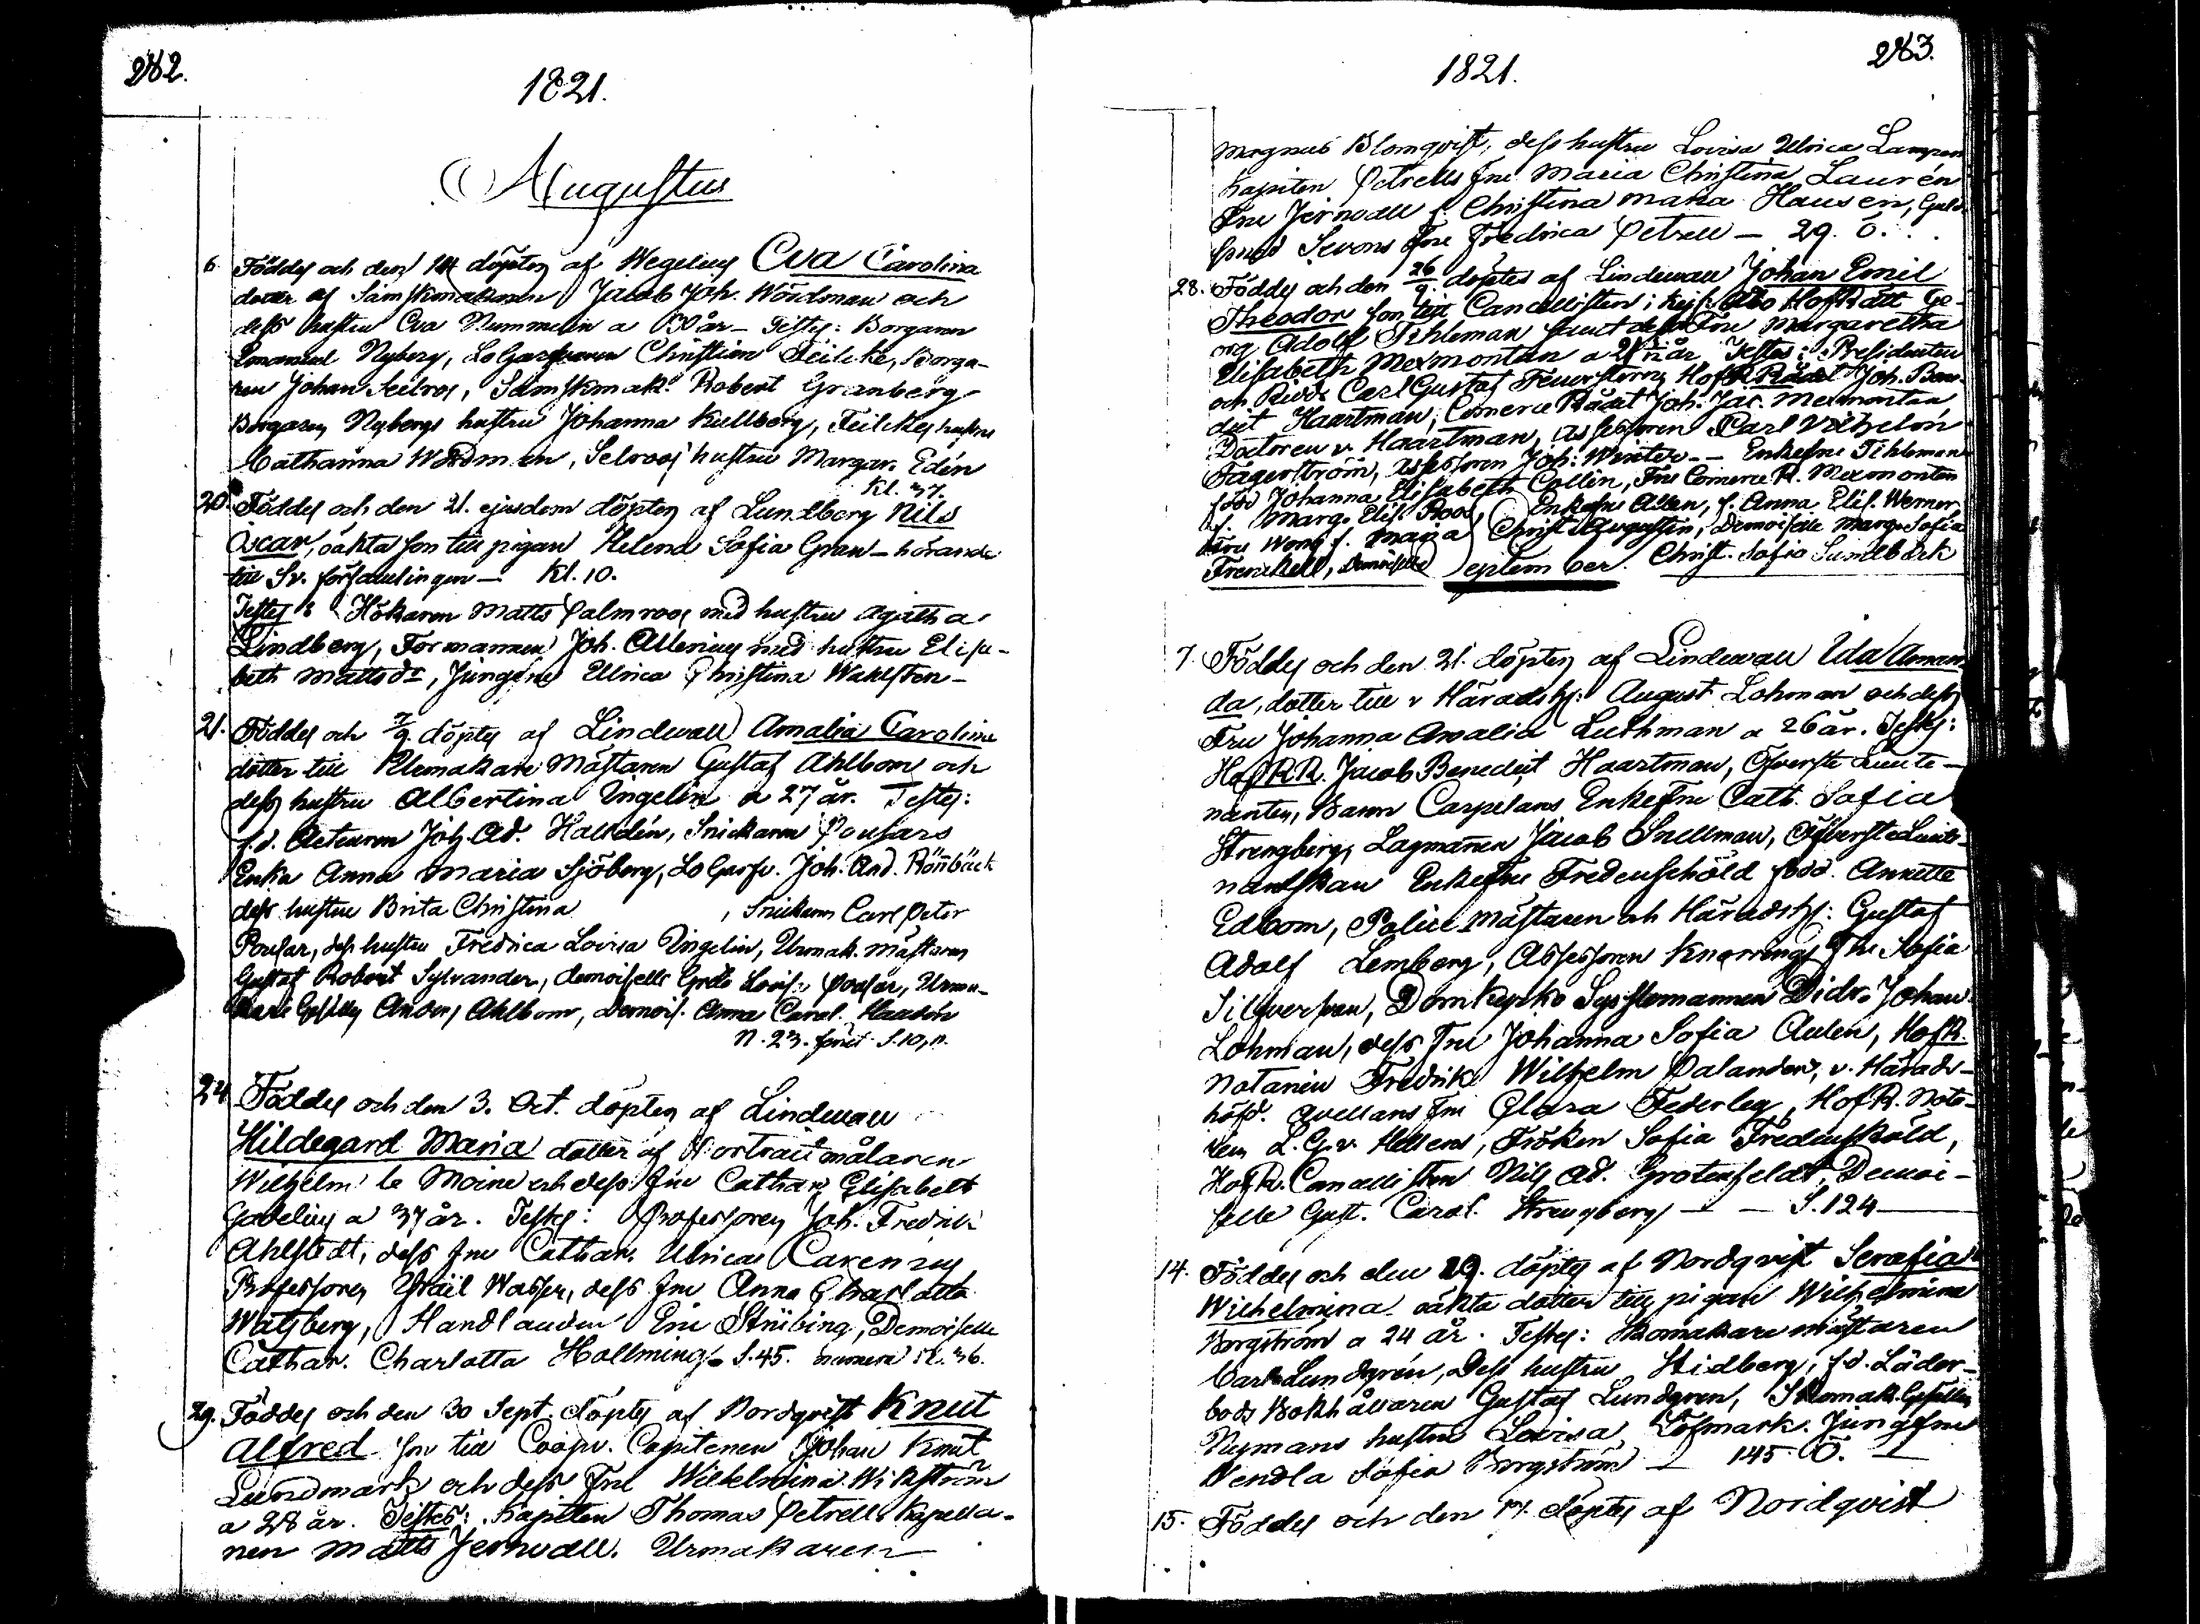 282.
1821.
Augustus
6. Föddes och den 14 döptes af Wegelius Eva Carolina
dotter af Sämskmakaren Jacob Joh. Nordman och
dess hustru Eva Nummelin a 30 år – Testes: Borgaren
Emanuel Nyberg, Christian Feilcke, Borga-
ren Johan Selroos, Sämskmak. Robert Granberg
Borgaren Nybergs hustru Johanna Kullberg, Feilckes hustru
Catharina Nordman, Selroos' hustru Margar. Edén
Kl. 37.
20. Föddes och den 21. ejusdem döptes af Lundberg Nils
Oscar, oäkta son till pigan Helena Sofia Gran – hörande
till Sv. församlingen – Kl. 10.
Testes: Hökaren Matts Palmroos med hustru Agatha
Lindberg, Formannen Joh. Allenius med hustru Elisa-
beth Mattsdr, Jungfru Ulrica Christina Wahlsten –
21. Föddes och 7/9. döptes af Lindewall Amalia Carolina
dotter till Urmakare Mästaren Gustaf Ahlbom och
dess hustru Albertina Ungelin a 27 år. Testes:
f.d. Acteuren Joh. Ad. Halldén, Snickaren Pousars
Enka Anna Maria Sjöberg, Lo Garfv. Joh. And. Rönbäck
dess hustru Brita Christina , Snickaren Carl Peter
Pousar, dess hustru Fredrica Lovisa Ungelin, Urmak. mästaren
Gustaf Robert Sylvander, demoiselle Greta Lovis. Pousar, Urma-
kare Gesällen Anders Ahlbom, Demois. Anna Carol.
N. 23. S. 10, n.
24. Föddes och den 3. Oct. döptes af Lindewall
Hildegard Maria dotter af Portraitmålaren
Wilhelm le Moine och dess Fru Cathar. Elisabeth
Gadelius a 37 år. Testes: Professoren Joh. Fredrik
Ahlstedt, dess Fru Cathar. Ulrica Carenius
Professoren Israël Wasser, dess Fru Anna Charlotta
Watzberg, Handlanden Eric Strübing, Demoiselle
Cathar. Charlotta Hallming. S. 45. numera Kl. 36.
29. Föddes och den 30 Sept. döptes af Nordqvist Knut
Alfred son till Coopv. Capitenen Johan Knut
Lundmark och dess Fru Wilhelmina Wikström
a 28 år. Testes: Kapiten Thomas Petrell Kapella-
nen Matts Jernvall. Urmakaren
283.
1821.
Magnus Blomqvist, dess hustru Lovisa Ulrica Lampen
Kapiten Petrells Fru Maria Christina Laurén
Fru Jernvall f. Christina Maria Hausen, Guld-
smed Levons Fru Fredrica Petrell – 29. Ö.
28. Föddes och den 26/9. döptes af Lindewall Johan Emil
Theodor son till Cancellisten i Kejs. Åbo HofRätt Ge-
org Adolf Tihleman samt dess Fru Margaretha
Elisabeth Mexmontan a 21 år Testes: Presidenten
och Ridd. Carl Gustaf HofRRådet Joh. Bene-
dict Haartman, ComerceRådet Joh. Jac. Mexmontan
Doctoren v. Haartman, Assessoren Carl Vilhelm
Fågerström, Assessoren Joh. Winter – – Enkefru Tihleman
född Johanna Elisabeth Collin, Fru Comerce R. Mexmontan
f. Marg. Elis. Roos, Enkefru Allen, f. Anna Elis. Werner,
f. Maria Christ. Augustin, Demoiselle Marg. Sofia
Frenckell, Demoiselle Christ. Sofia Sundbäck
September.
7. Föddes och den 21. döptes af Lindewall Ida Aman-
da, dotter till v Häradsh: August Lohman och dess
Fru Johanna Amalia Luthman a 26 år. Testes:
HofRR. Jacob Benedict Haartman, Öfverste Leute-
nanten, Baron Carpelans Enkefru Cath. Sofia
Strengberg, Lagmannen Jacob Snellman, Öfverste Leute-
nantskan Enkefru Fredenschöld född Annette
Edbom, Police mästaren och Häradsh: Gustaf
Adolf Lemberg, Assessoren Knorrings Fru Sofia
Silfversvan, DomKyrko Sysslomannen Didr. Johan
Lohman, dess Fru Johanna Sofia Aulen, HofR.
Notarien Fredrik Wilhelm Palander, v. Härads-
höfd. Avellans Fru Clara Federley, HofR. Nota-
rien L. G. v. Hellens, Fröken Sofia Fredenskiöld,
HofR. Cancellisten Nils Ad. Grotenfeldt, Demoi-
selle Gust. Carol. Strengberg – – S. 124
14. Föddes och den 29. döptes af Nordqvist Serafia
Wilhelmina oäkta dotter till pigan Wilhelmina
Borgström a 24 år. Testes: Skomakare mästaren
Carl Lundgren, Dess hustru Hidberg, f.d. Läder-
bods Bokhållaren Gustaf Lundgren, Skomak. Gesällen
Nymans hustru Lovisa Löfmark. Jungfru
Wendla Sofia Borgström – 145 Ö. –
15. Föddes och den 17. döptes af Nordqvist